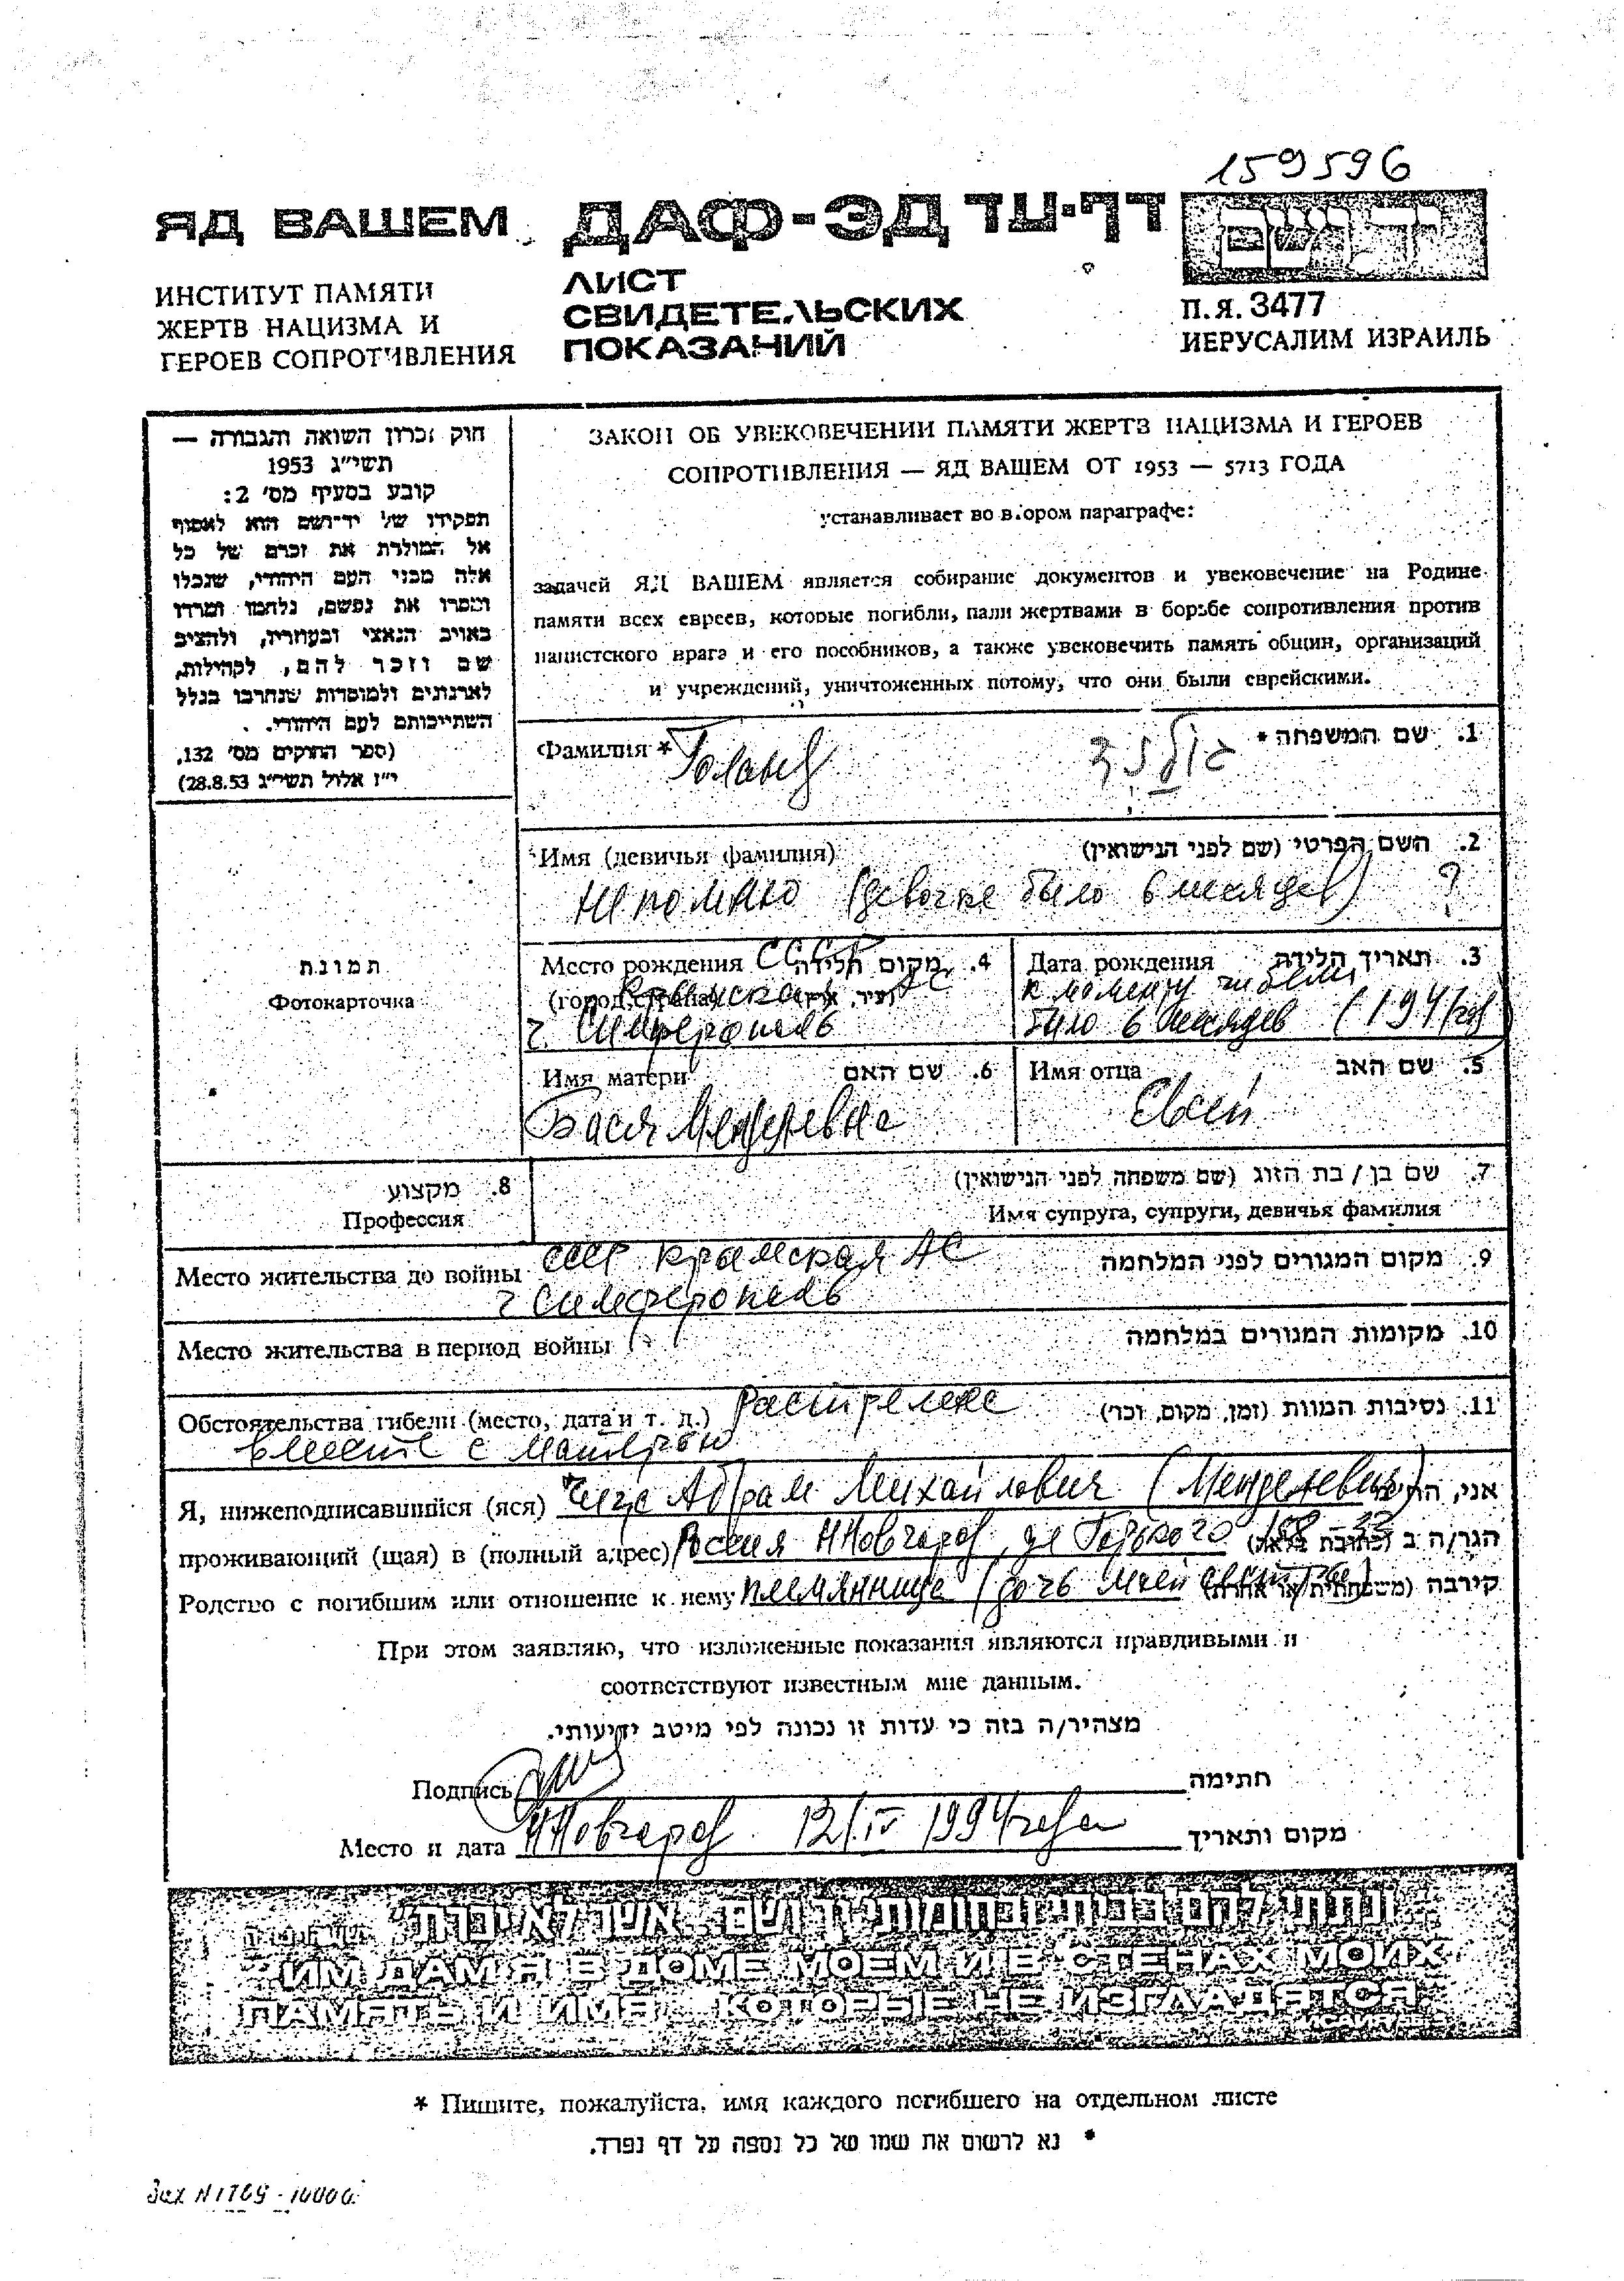 159596
ЯД ВАШЕМ ДАФ-ЭД דף-עד יד ושם
ИНСТИТУТ ПАМЯТИ
ЖЕРТВ НАЦИЗМА И
ГЕРОЕВ СОПРОТИВЛЕНИЯ
ЛИСТ
СВИДЕТЕЛЬСКИХ
ПОКАЗАНИЙ
П.Я. 3477
ИЕРУСАЛИМ ИЗРАИЛЬ
חוק זכרון השואה והגבורה —
תשי״ג 1953
קובע בסעיף מס׳ 2:
תפקידו של יד-ושם הוא לאסוף
אל המולדת את זכרם של כל
אלה מבני העם היהודי, שנפלו
ומסרו את נפשם, נלחמו ומרדו
באויב הנאצי ובעוזריו, ולהציב
שם וזכר להם, לקהילות,
לארגונים ולמוסדות שנחרבו בגלל
השתייכותם לעם היהודי.
(ספר החוקים מס׳ 132,
י״ז אלול תשי״ג 28.8.53)
ЗАКОН ОБ УВЕКОВЕЧЕНИИ ПАМЯТИ ЖЕРТВ НАЦИЗМА И ГЕРОЕВ
СОПРОТИВЛЕНИЯ — ЯД ВАШЕМ ОТ 1953 — 5713 ГОДА
устанавливает во втором параграфе:
задачей ЯД ВАШЕМ является собирание документов и увековечение на Родине
памяти всех евреев, которые погибли, пали жертвами в борьбе сопротивления против
нацистского врага и его пособников, а также увековечить память общин, организаций
и учреждений, уничтоженных потому, что они были еврейскими.
Фамилия * Голанд גולנד 1. שם המשפחה *
Имя (девичья фамилия) 2. השם הפרטי (שם לפני הנישואין)
не помню (девочке было 6 месяцев) ?
תמונה
Фотокарточка
Место рождения СССР 4. מקום הלידה
(город, страна) Крымская АС (עיר, ארץ)
г. Симферополь
Дата рождения 3. תאריך הלידה
к моменту гибели
было 6 месяцев (1941 год)
Имя матери 6. שם האם
Бася Менделевна
Имя отца 5. שם האב
Евсей
8. מקצוע
Профессия
7. שם בן / בת הזוג (שם משפחה לפני הנישואין)
Имя супруга, супруги, девичья фамилия
Место жительства до войны СССР Крымская АС 9. מקום המגורים לפני המלחמה
г Симферополь
Место жительства в период войны 10. מקומות המגורים במלחמה
Обстоятельства гибели (место, дата и т. д.) Расстреляна 11. נסיבות המוות (זמן, מקום, וכו׳)
вместе с матерью
Я, нижеподписавшийся (яся) Абрам Михайлович (Менделевич) אני, הח״מ
проживающий (щая) в (полный адрес) Россия Н Новгород, ул Горького הגר/ה ב (כתובת מלאה)
Родство с погибшим или отношение к нему племянница (дочь моей сестры) קירבה (משפחתית או אחרת)
При этом заявляю, что изложенные показания являются правдивыми и
соответствуют известным мне данным.
מצהיר/ה בזה כי עדות זו נכונה לפי מיטב ידיעותי.
Подпись חתימה
Место и дата Н Новгород 12/IV 1994 года מקום ותאריך
"ונתתי להם בביתי ובחומותי יד ושם... אשר לא יכרת" ישעיהו נו ה
"ИМ ДАМ Я В ДОМЕ МОЕМ И В СТЕНАХ МОИХ
ПАМЯТЬ И ИМЯ... КОТОРЫЕ НЕ ИЗГЛАДЯТСЯ"
* Пишите, пожалуйста, имя каждого погибшего на отдельном листе
* נא לרשום את שמו של כל נספה על דף נפרד.
Зак N 1769 - 10000